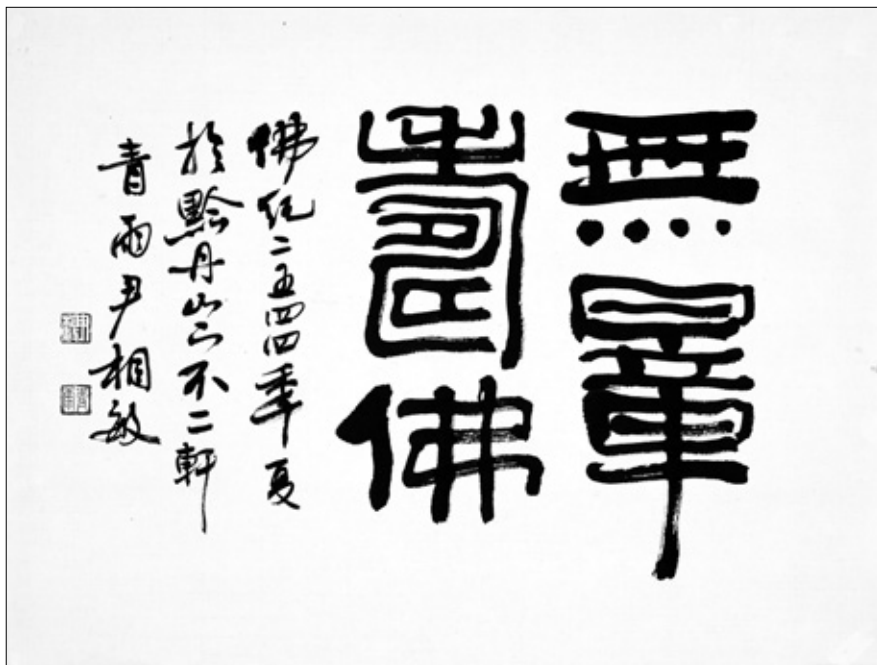 無量
壽佛
佛紀二五四四秊夏
於黔丹山下不二軒
青雨尹相敏